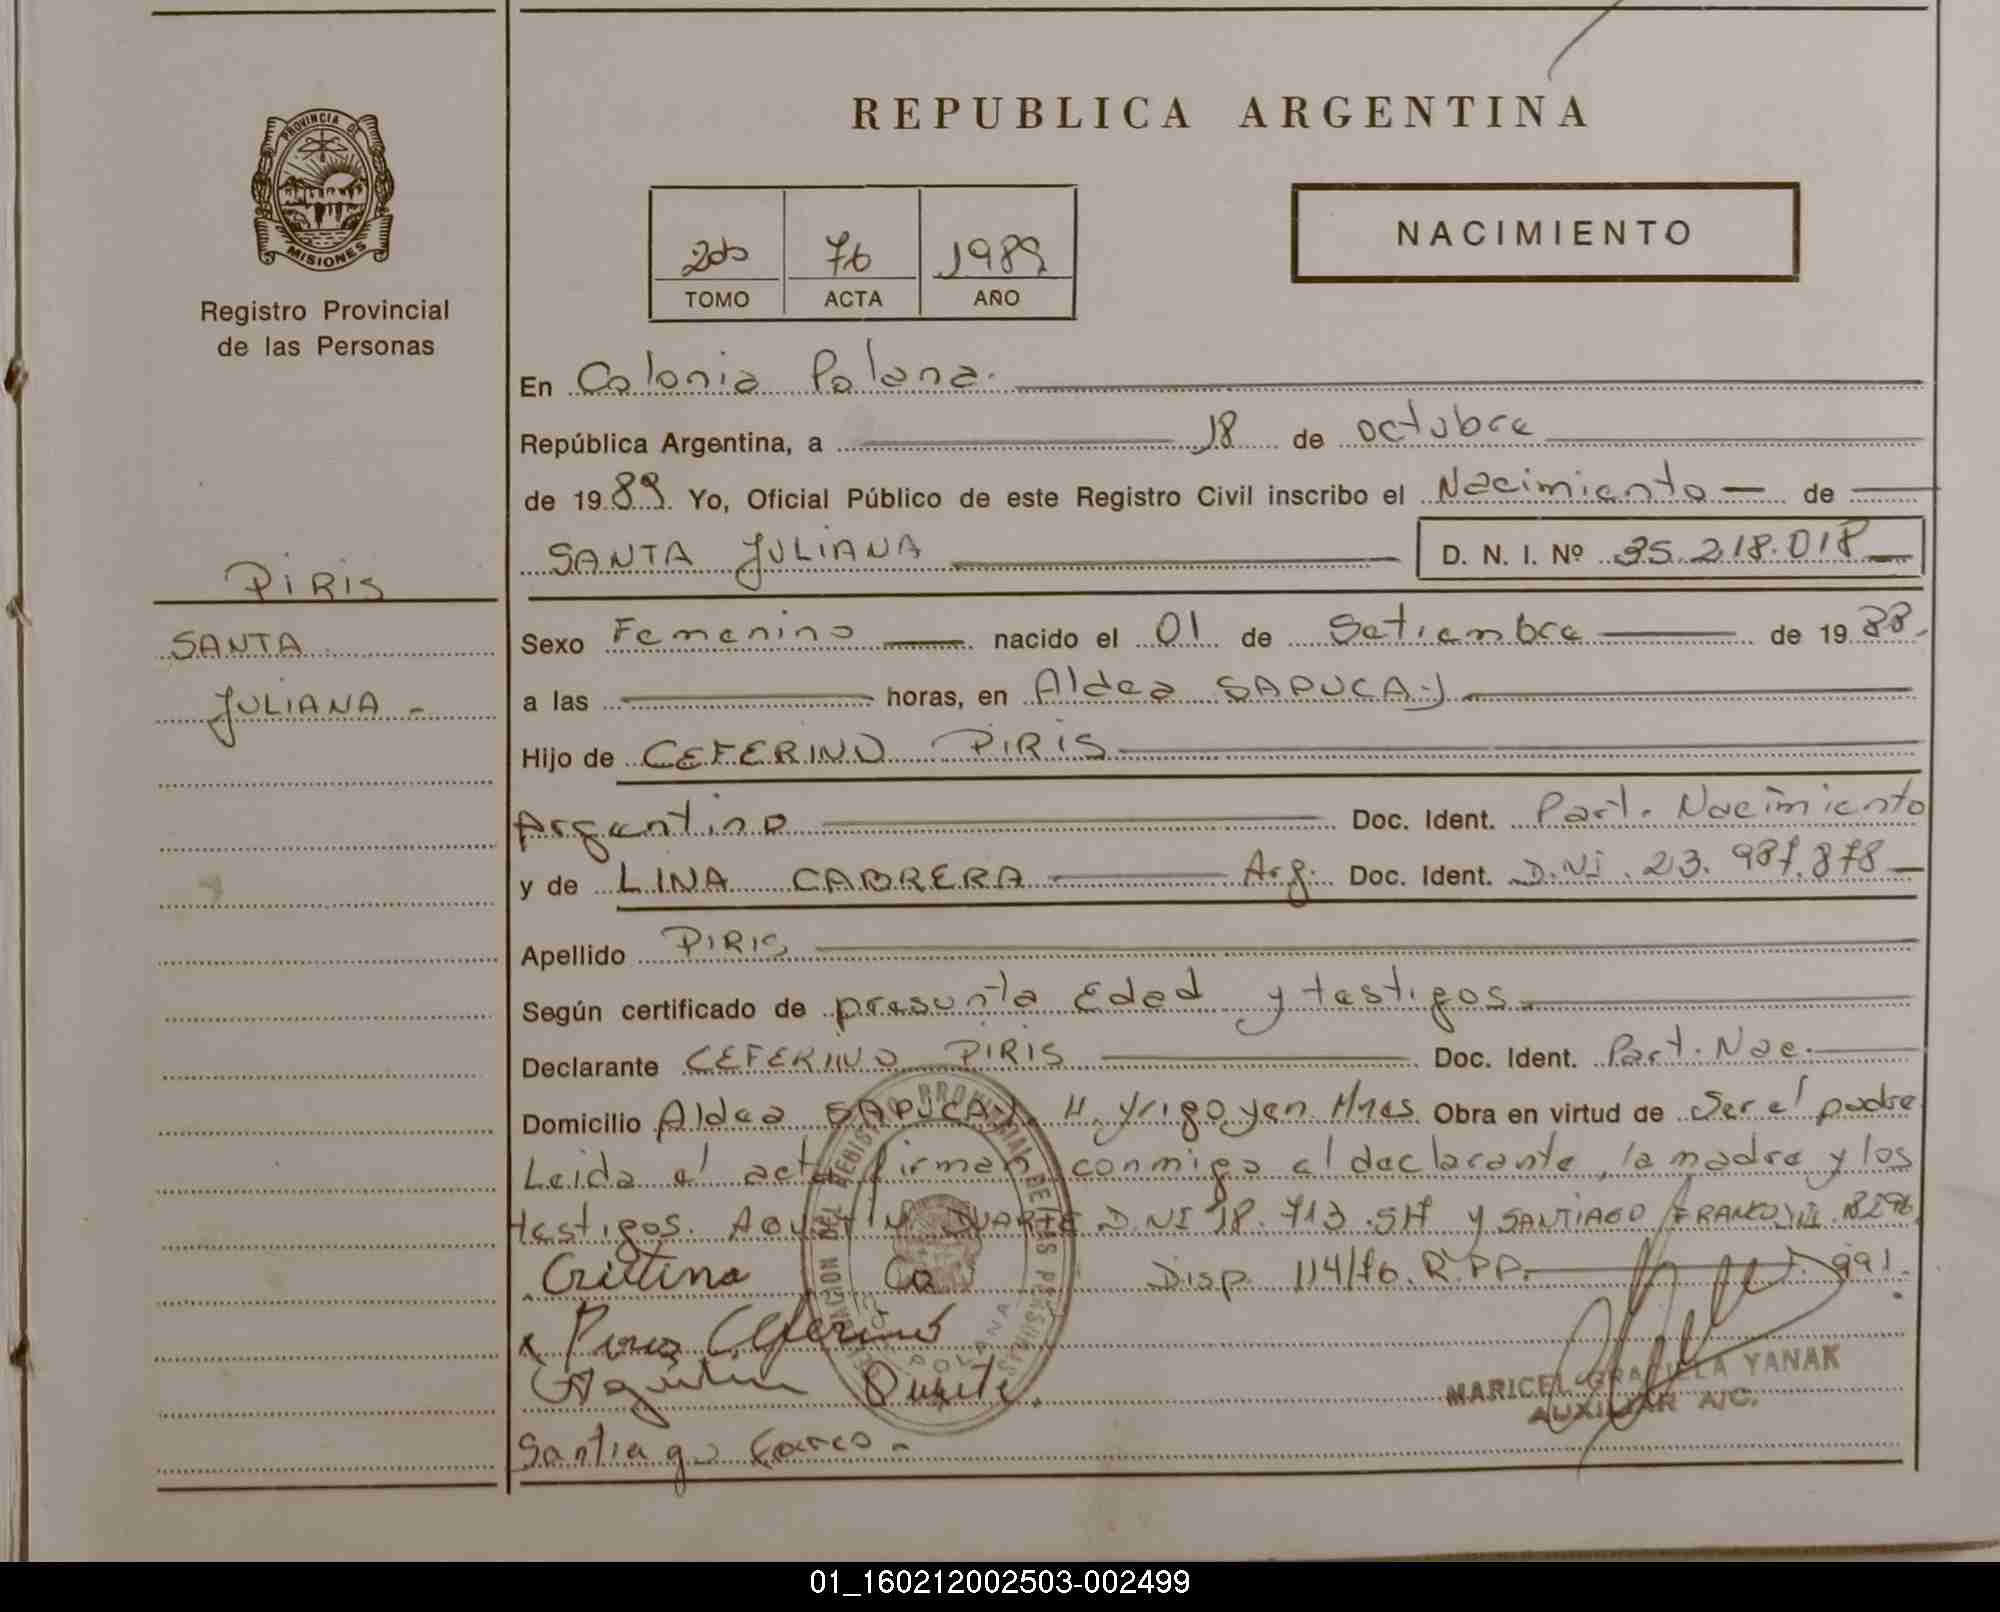 PROVINCIA DE
MISIONES
Registro Provincial
de las Personas
PIRIS
SANTA
JULIANA -
REPUBLICA ARGENTINA
2do 76 1989
TOMO ACTA AÑO
NACIMIENTO
En Colonia Polana.
República Argentina, a 18 de octubre
de 1989 Yo, Oficial Público de este Registro Civil inscribo el Nacimiento — de —
SANTA JULIANA D. N. I. Nº 35.218.018
Sexo Femenino nacido el 01 de Setiembre de 1988.
a las horas, en Aldea SAPUCAY
Hijo de CEFERINO PIRIS
Argentino Doc. Ident. Part. Nacimiento
y de LINA CABRERA Arg. Doc. Ident. D.NI. 23.987.878
Apellido PIRIS
Según certificado de presunta Edad y testigos
Declarante CEFERINO PIRIS Doc. Ident. Part. Nac.
Domicilio Aldea SAPUCAY. H. Yrigoyen Mnes Obra en virtud de Ser el padre
Leida el acta firman conmigo el declarante, la madre y los
testigos. AGUSTIN DUARTE D.NI 18.713. y SANTIAGO FRANCO
Cristina Ca Disp. 114/ R.P.P. 991.
x Piris Ceferino
Agustin Duarte.
Santiago -
MARICEL GRACIELA YANAK
AUXILIAR A/C.
01_160212002503-002499